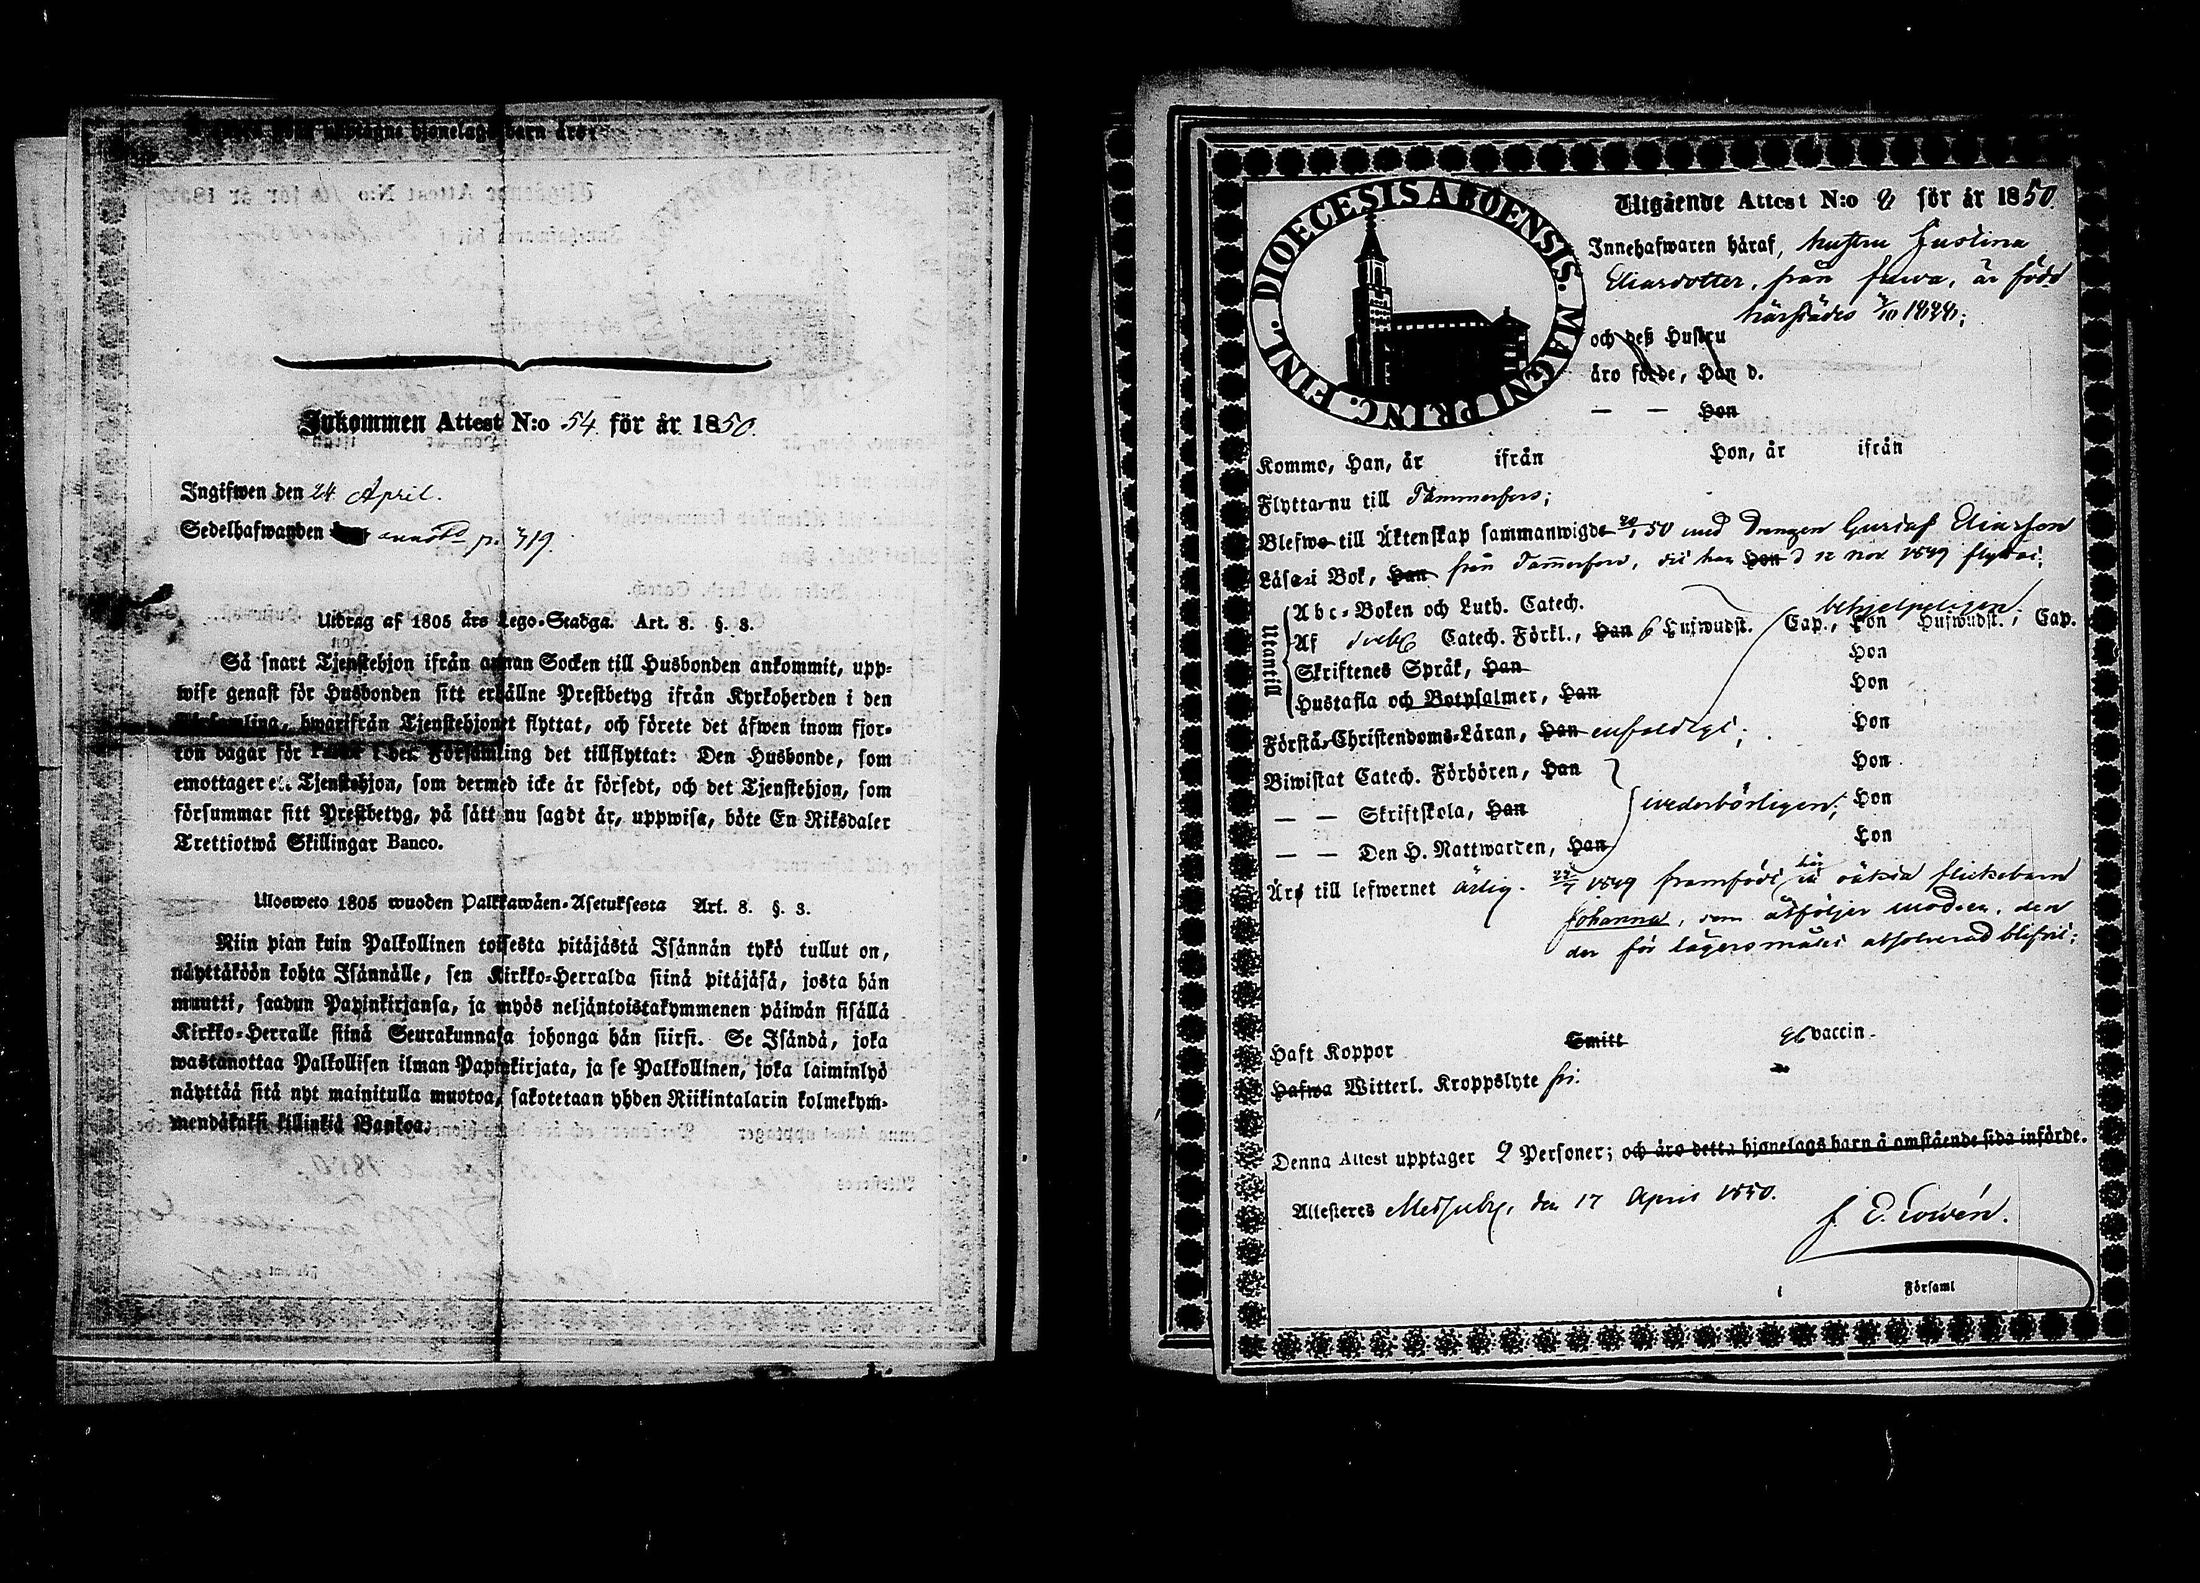 barn äro:
Inkommen Attest N:o 54 för år 1850.
Ingifwen den 24 April.
Sedelhafwanden annoto p. 319.
Utdrag af 1805 års Lego-Stadga. Art. 8. §. 3.
Så snart Tjenstehjon ifrån annan Socken till Husbonden ankommit, upp-
wise genast för Husbonden sitt erhållne Prestbetyg ifrån Kyrkoherden i den
Församling, hwarifrån Tjenstehjonet flyttat, och förete det äfwen inom fjor-
ton dagar för i den Församling det tillflyttat: Den Husbonde, som
emottager ett Tjenstehjon, som dermed icke är försedt, och det Tjenstehjon, som
försummar sitt Prestbetyg, på sätt nu sagdt är, uppwisa, böte En Riksdaler
Trettiotwå Skillingar Banco.
Ulosweto 1805 wuoden Palkkawäen-Asetuksesta Art. 8. §. 3.
Niin pian kuin Palkollinen toisesta pitäjästä Isännän tykö tullut on,
näyttäköön kohta Isännälle, sen Kirkko-Herralda siinä pitäjäsä, josta hän
muutti, saadun Papinkirjansa, ja myös neljäntoistakymmenen päiwän sisällä
Kirkko-Herralle siinä Seurakunnasa johonga hän siirsi. Se Isändä, joka
wastanottaa Palkollisen ilman Papinkirjata, ja se Palkollinen, joka laiminlyö
näyttää sitä nyt mainitulla muotoa, sakotetaan yhden Riikintalarin kolmekym-
mendäkaksi killinkiä Bankoa.
DIOECESIS ABOENSIS. MAGNI PRINC. FINL.
Utgående Attest N:o 2 för år 1850.
Innehafwaren häraf, hustru Justina
Eliasdotter, från Juwa, är född
härstädes
och deß Hustru
äro födde, Han d.
— — Hon
Komme, Han, år ifrån Hon, år ifrån
Flyttar nu till Tammerfors;
Blefwo till Äktenskap sammanwigde 50 med Drengen Gustaf Eliasson
Läser i Bok, Han från Tammerfors, dit han Hon d 12 nov 1849 flyttat;
Utantill
Abc-Boken och Luth. Catech. behjelpeligen.
Af Catech. Förkl., Han 6 Hufwudst. Cap., Hon Hufwudst., Cap.
Skriftenes Språk, Han Hon
Hustafla och Botpsalmer, Han Hon
Förstå Christendoms-Läran, Han enfaldigt; Hon
Biwistat Catech. Förhören, Han Hon
— — Skriftskola, Han wederbörligen; Hon
— — Den H. Nattwarden, Han Hon
Äro till lefwernet ärlig. 1849 framfödt här flickebarn
Johanna, som åtföljer modren, den
der för lägersmålet absolverad blifvit;
Haft Koppor Smitt vaccin.
Hafwa Witterl. Kroppslyte fri.
Denna Attest upptager 2 Personer; och äro detta hjonelags barn å omstående sida införde.
Attesteres Messuby, den 17 April 1850.
Församl